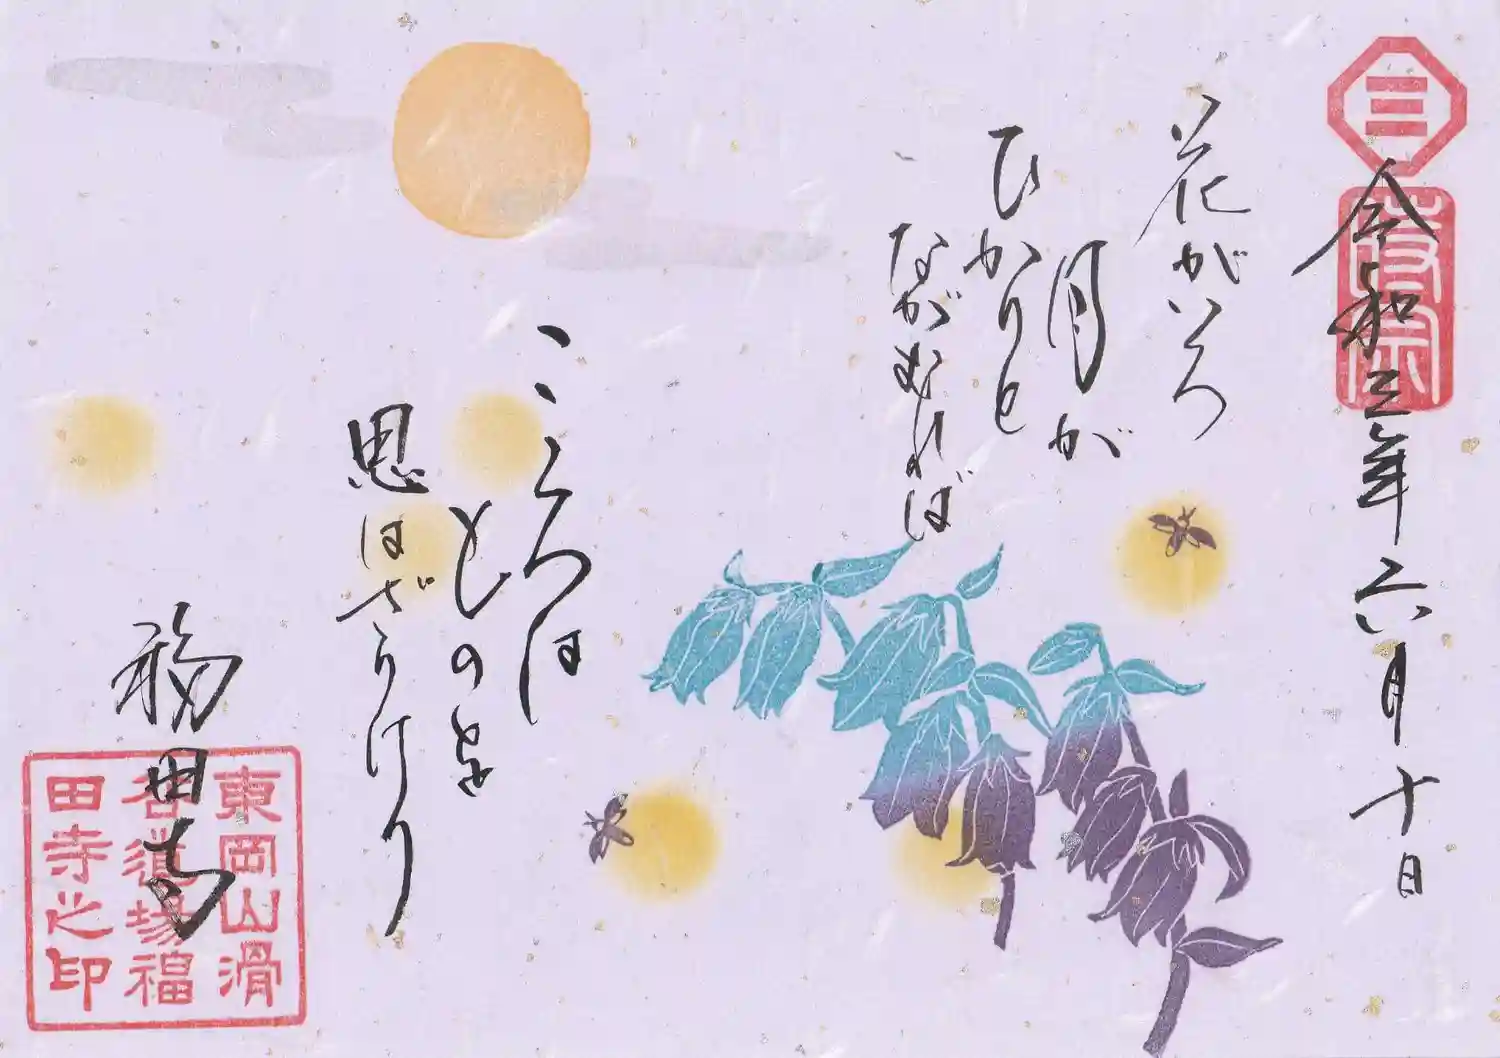 三
時宗
令和三年六月十日
花がいろ
月が
ひかりと
ながむれば
こゝろは
ものを
思はざりけり
福田寺
東岡山滑
谷道場福
田寺之印